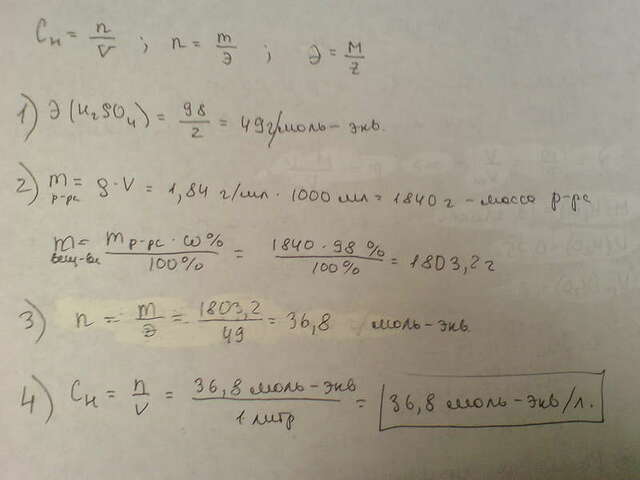 Cн = n/V ; n = m/Э ; Э = M/z
1) Э (H₂SO₄) = 98/2 = 49 г/моль-экв.
2) m р-ра = ρ · V = 1,84 г/мл · 1000 мл = 1840 г - масса р-ра
m вещ-ва = m р-ра · ω% / 100% = 1840 · 98 % / 100% = 1803,2 г
3) n = m/Э = 1803,2/49 = 36,8 моль-экв.
4) Cн = n/V = 36,8 моль-экв / 1 литр = 36,8 моль-экв/л.